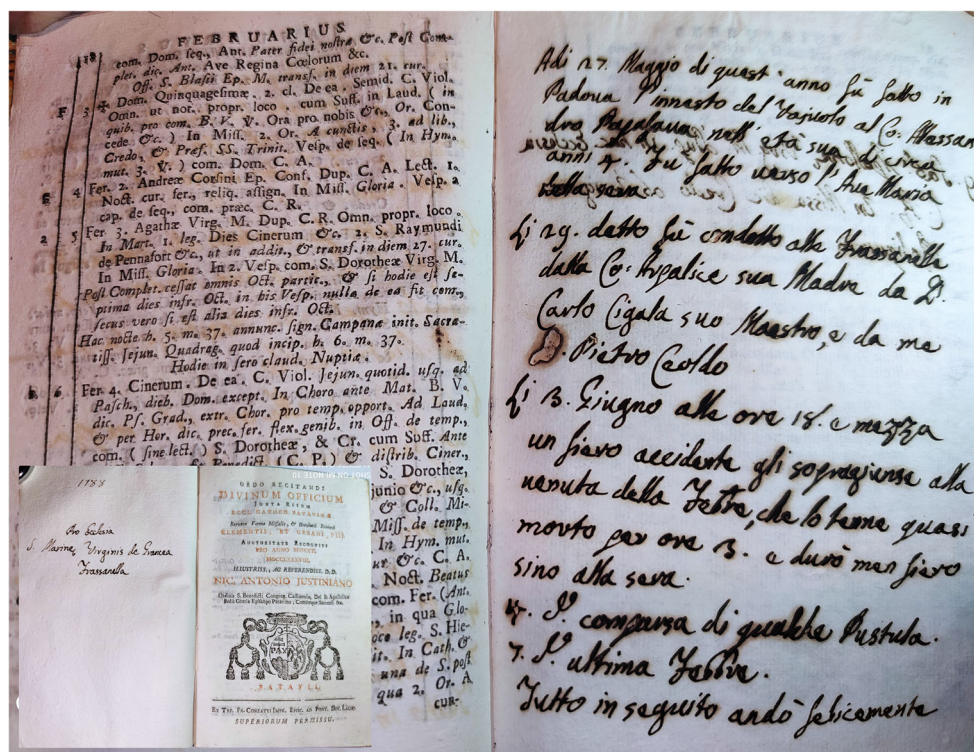 FEBRUARIUS
com. Dom. seq., Ant. Pater fidei nostræ &c. Post Com-
plet. dic. Ant. Ave Regina Cœlorum &c.
Off. S. Blasii Ep. M. transf. in diem 21. cur.
F 3 ✠ Dom. Quinquagesimæ. 2. cl. De ea. Semid. C. Viol.
Omn. ut nor. propr. loco. cum Suff. in Laud. ( in
quib. pro com. B. V. V. Ora pro nobis &c., Or. Con-
cede &c. ) In Miss. 2. Or. A cunctis, 3. ad lib.,
Credo, & Præf. SS. Trinit. Vesp. de seq. ( In Hym.
mut. 3. V. ) com. Dom. C. A.
g 4 Fer. 2. Andreæ Corsini Ep. Conf. Dup. C. A. Lect. 1.
Noct. cur. fer., reliq. assign. In Miss. Gloria. Vesp. a
cap. de seq., com. præc. C. R.
a 5 Fer 3. Agathæ Virg. M. Dup. C. R. Omn. propr. loco.
In Mart. 1. leg. Dies Cinerum &c. 2. S. Raymundi
de Pennafort &c., ut in addit., & transf. in diem 27. cur.
In Miss. Gloria. In 2. Vesp. com. S. Dorotheæ Virg. M.
Post Complet. cessat omnis Oct. partic., & si hodie est se-
ptima dies infr. Oct. in his Vesp. nulla de ea fit com.,
secus vero si est alia dies infr. Oct.
Hac nocte h. 5. m. 37. annunc. sign. Campanæ init. Sacra-
tiss. Jejun. Quadrag. quod incip. h. 6. m. 37.
Hodie in sero claud. Nuptiæ.
b 6 Fer. 4. Cinerum. De ea. C. Viol. Jejun. quotid. usq. ad
Pasch., dieb. Dom. except. In Choro ante Mat. B. V.
dic. Ps. Grad., extr. Chor. pro temp. opport. Ad Laud.
& per Hor. dic. prec. fer. flex. genib. in Off. de temp.,
com. ( sine lect. ) S. Dorotheæ, & Cr. cum Suff. Ante
( C. P. ) & distrib. Ciner.,
S. Dorotheæ,
junio &c., usq.
& Coll. Mi-
Miss. de temp.,
In Hym. mut.
&c. C. A.
Noct. Beatus
com. Fer. (Ant.
, in qua Glo-
loco leg. S. Hie-
it. In Cath. &
una de S. post
qua 2. Or. A
cur-
SHOT ON MI NOTE 10
1788
Pro Ecclesia
S. Marinæ Virginis de
Frassanella
ORDO RECITANDI
DIVINUM OFFICIUM
JUXTA RITUM
ECCL. CATHED. PATAVINÆ
CLEMENTIS, ET URBANI VIII.
AUCTORITATE RECOGNITUS
PRO ANNO BISSEXT.
MDCCLXXXVIII.
ILLUSTRISS., AC REVERENDISS. D.D.
NIC. ANTONIO JUSTINIANO
Ordinis S. Benedicti Congreg. Cassinensis, Dei & Apostolicæ
Sedis Gratia Episcopo Patavino, Comiteque Saccensi &c.
PAX
PATAVII.
EX TYP. FR. CONZATTI IMPR. EPISC. AD PONT. DIV. LAUR.
SUPERIORUM PERMISSU.
Adi 27. Maggio di quest' anno fù fatto in
Padova l'innesto del Vajuolo al Co: Alessan
dro Papafava nell' età sua di circa
anni 4. Fu fatto verso l'Ave Maria
della sera
Li 29. detto fù condotto alla Frassanella
dalla Co: Arpalice sua Madre da D.
Carlo Cigala suo Maestro, e da me
D. Pietro Ceoldo
Li 3. Giugno alle ore 18. e mezza
un fiero accidente gli sopragiunse alla
venuta della Febbre, che lo tenne quasi
morto per ore 3. e durò men fiero
sino alla sera.
4. d.º comparsa di qualche Pustula.
7. d.º ultima Febbre.
Tutto in seguito andò felicemente